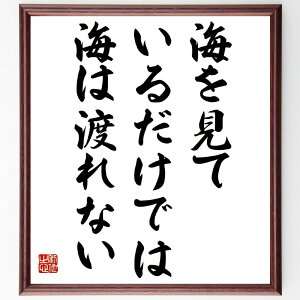 海を見て
いるだけでは
海は渡れない